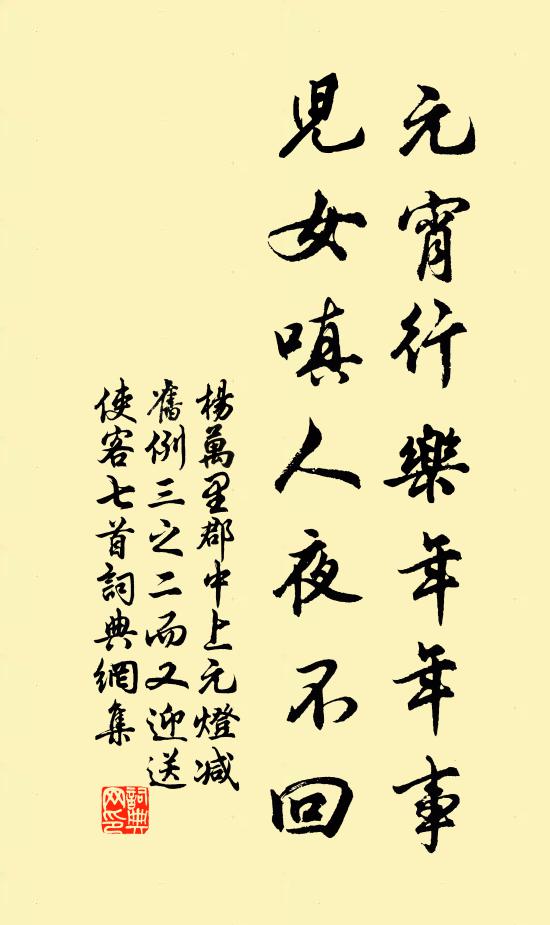 元宵行樂年年事
兒女嗔人夜不回
楊萬里郡中上元燈減
舊例三之二而又迎送
使客七首詞典網集
詞典網印